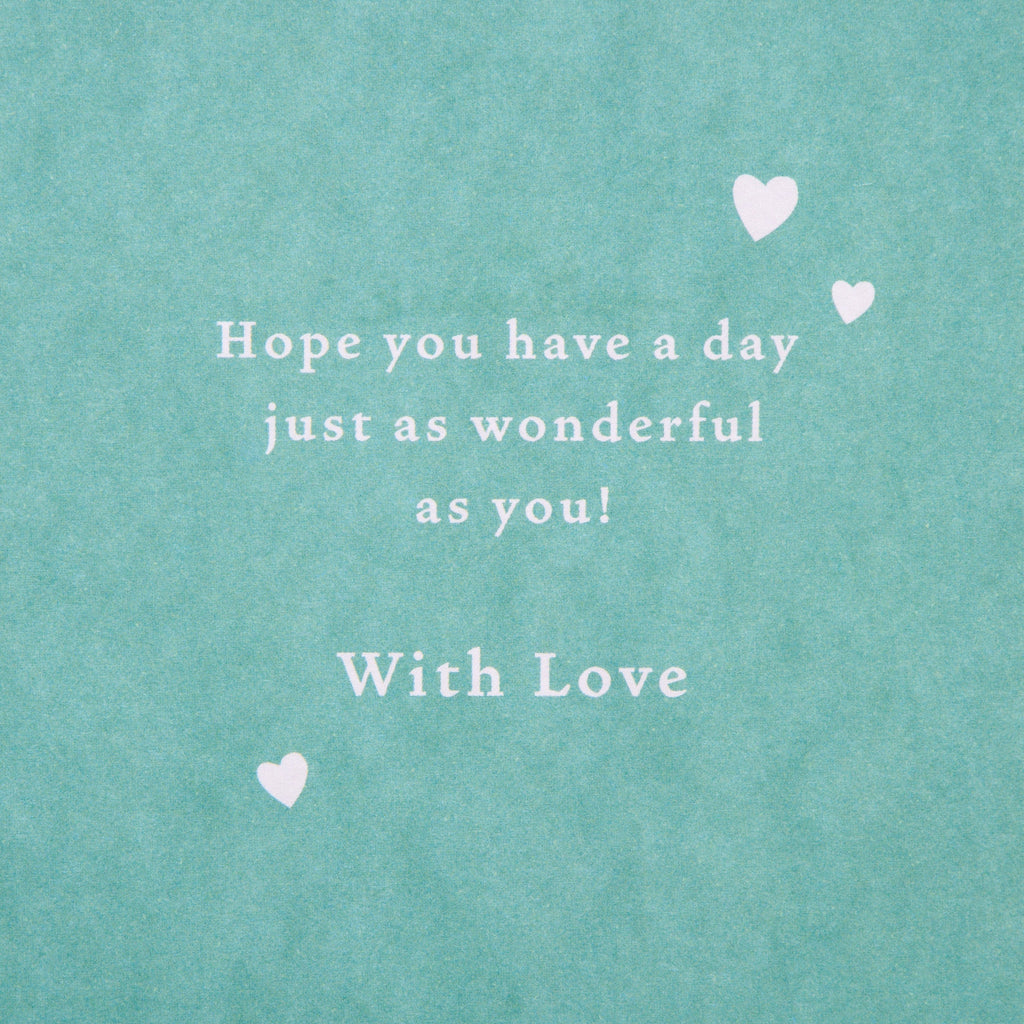 Hope you have a day
just as wonderful
as you!
With Love